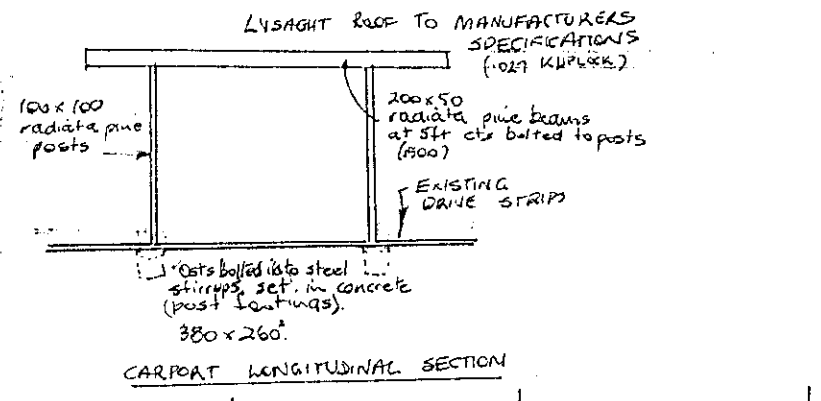 LYSAGHT ROOF TO MANUFACTURERS
SPECIFICATIONS
(.027 KLIPLOK)
100 x 100
radiata pine
posts
200 x 50
radiata pine beams
at 5ft cts bolted to posts
(1500)
EXISTING
DRIVE STRIPS
Posts bolted into steel
stirrups, set in concrete
(post footings).
380 x 260²
CARPORT LONGITUDINAL SECTION